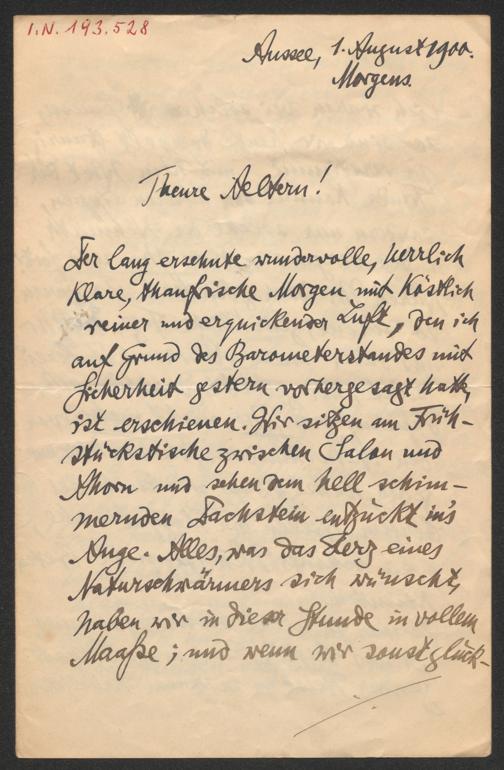 I.N. 193.528
Aussee, 1. August 1900.
Morgens.
Theure Aeltern!
Der lang ersehnte wundervolle, herrlich
klare, thaufrische Morgen mit köstlich
reiner und erquickender Luft, den ich
auf Grund des Barometerstandes mit
Sicherheit gestern vorhergesagt hatte,
ist erschienen. Wir sitzen am Früh-
stückstische zwischen Salon und
Ahorn und sehen dem hell schim-
mernden Dachstein entzückt in's
Auge. Alles, was das Herz eines
Naturschwärmers sich wünscht,
haben wir in dieser Stunde in vollem
Maaße; und wenn wir sonst glück-